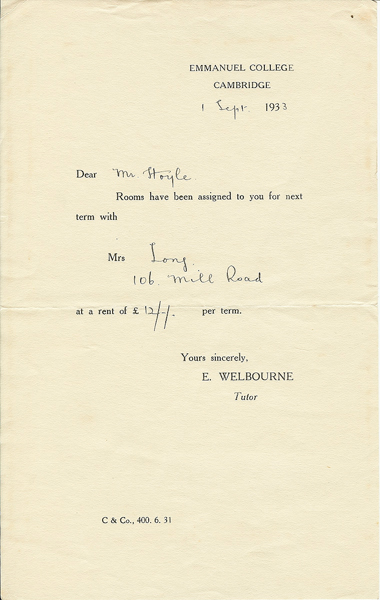 EMMANUEL COLLEGE
CAMBRIDGE
1 Sept. 1933
Dear Mr Hoyle
Rooms have been assigned to you for next
term with
Mrs Long
106. Mill Road
at a rent of £ 12/-/- per term.
Yours sincerely,
E. WELBOURNE
Tutor
C & Co., 400. 6. 31